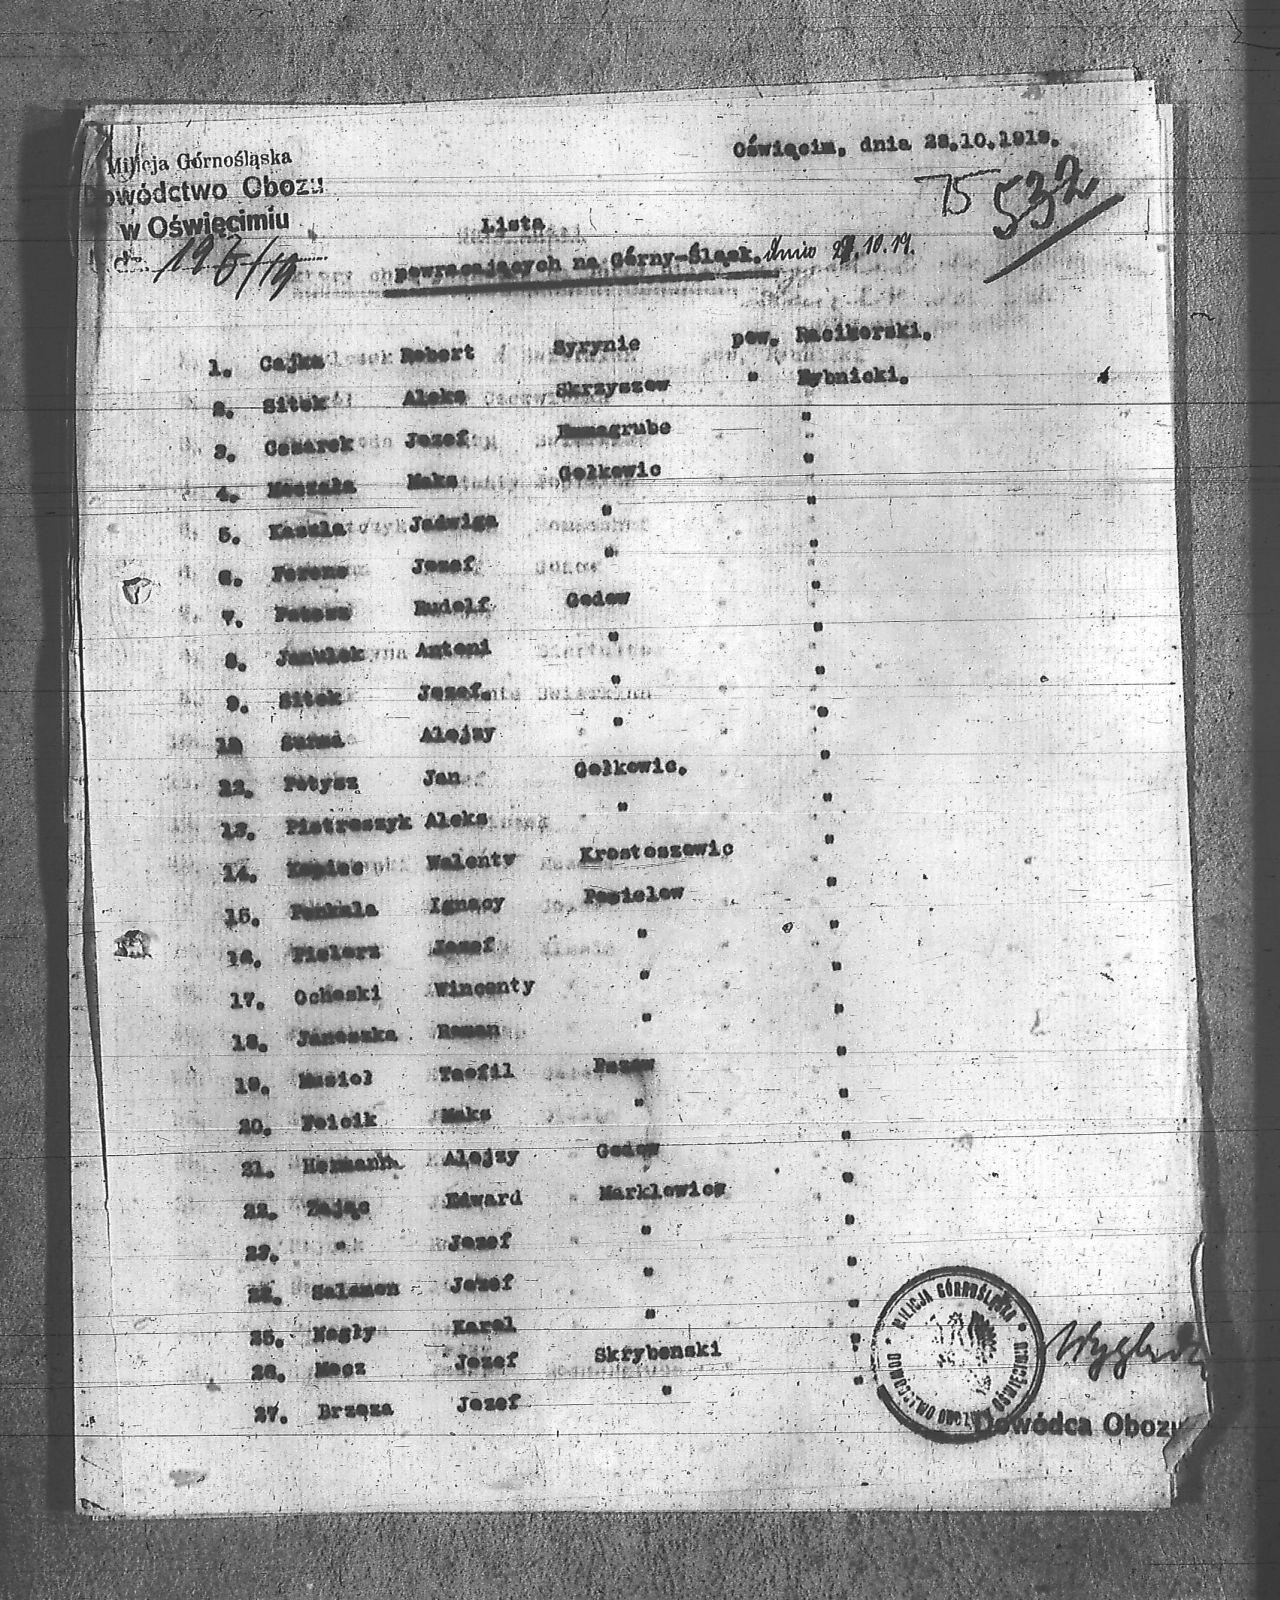 Milicja Górnośląska
Dowództwo Obozu
w Oświęcimiu
Oświęcim, dnia 28.10.1919.
75 532
Lista
powracających na Górny-Śląsk. dnia 29.10.19.
1. Cajka Robert Syrynie pow. Raciborski.
2. Sitek Aleks Skrzyszow " Rybnicki.
3. Jozef Emmagrube "
4. Maks Gołkowic "
5. Jadwiga " "
6. Ferens Jozef " "
7. Rudolf Godow "
8. Janulek Antoni " "
9. Sitek Jozef. " "
10 Alojzy " "
12. Potysz Jan Gołkowic. "
13. Pietraszyk Aleks " "
14. Kopiec Walenty Krostoszowic "
15. Punkala Ignacy "
16. Jozef " "
17. Ochoski Wincenty " "
18. Janeszka Roman " "
19. Musioł Teofil "
20. Maks " "
21. Hermann Alojzy Godow "
22. Zając Edward Marklowice "
23. " Jozef " "
24. Salamon Jozef " "
25. Nogły Karol " "
26. Mocz Jozef Skrybenski "
27. Brzoza Jozef " "
MILICJA GÓRNOŚLĄSKA
DOWÓDZTWO OBOZU
Dowódca Obozu